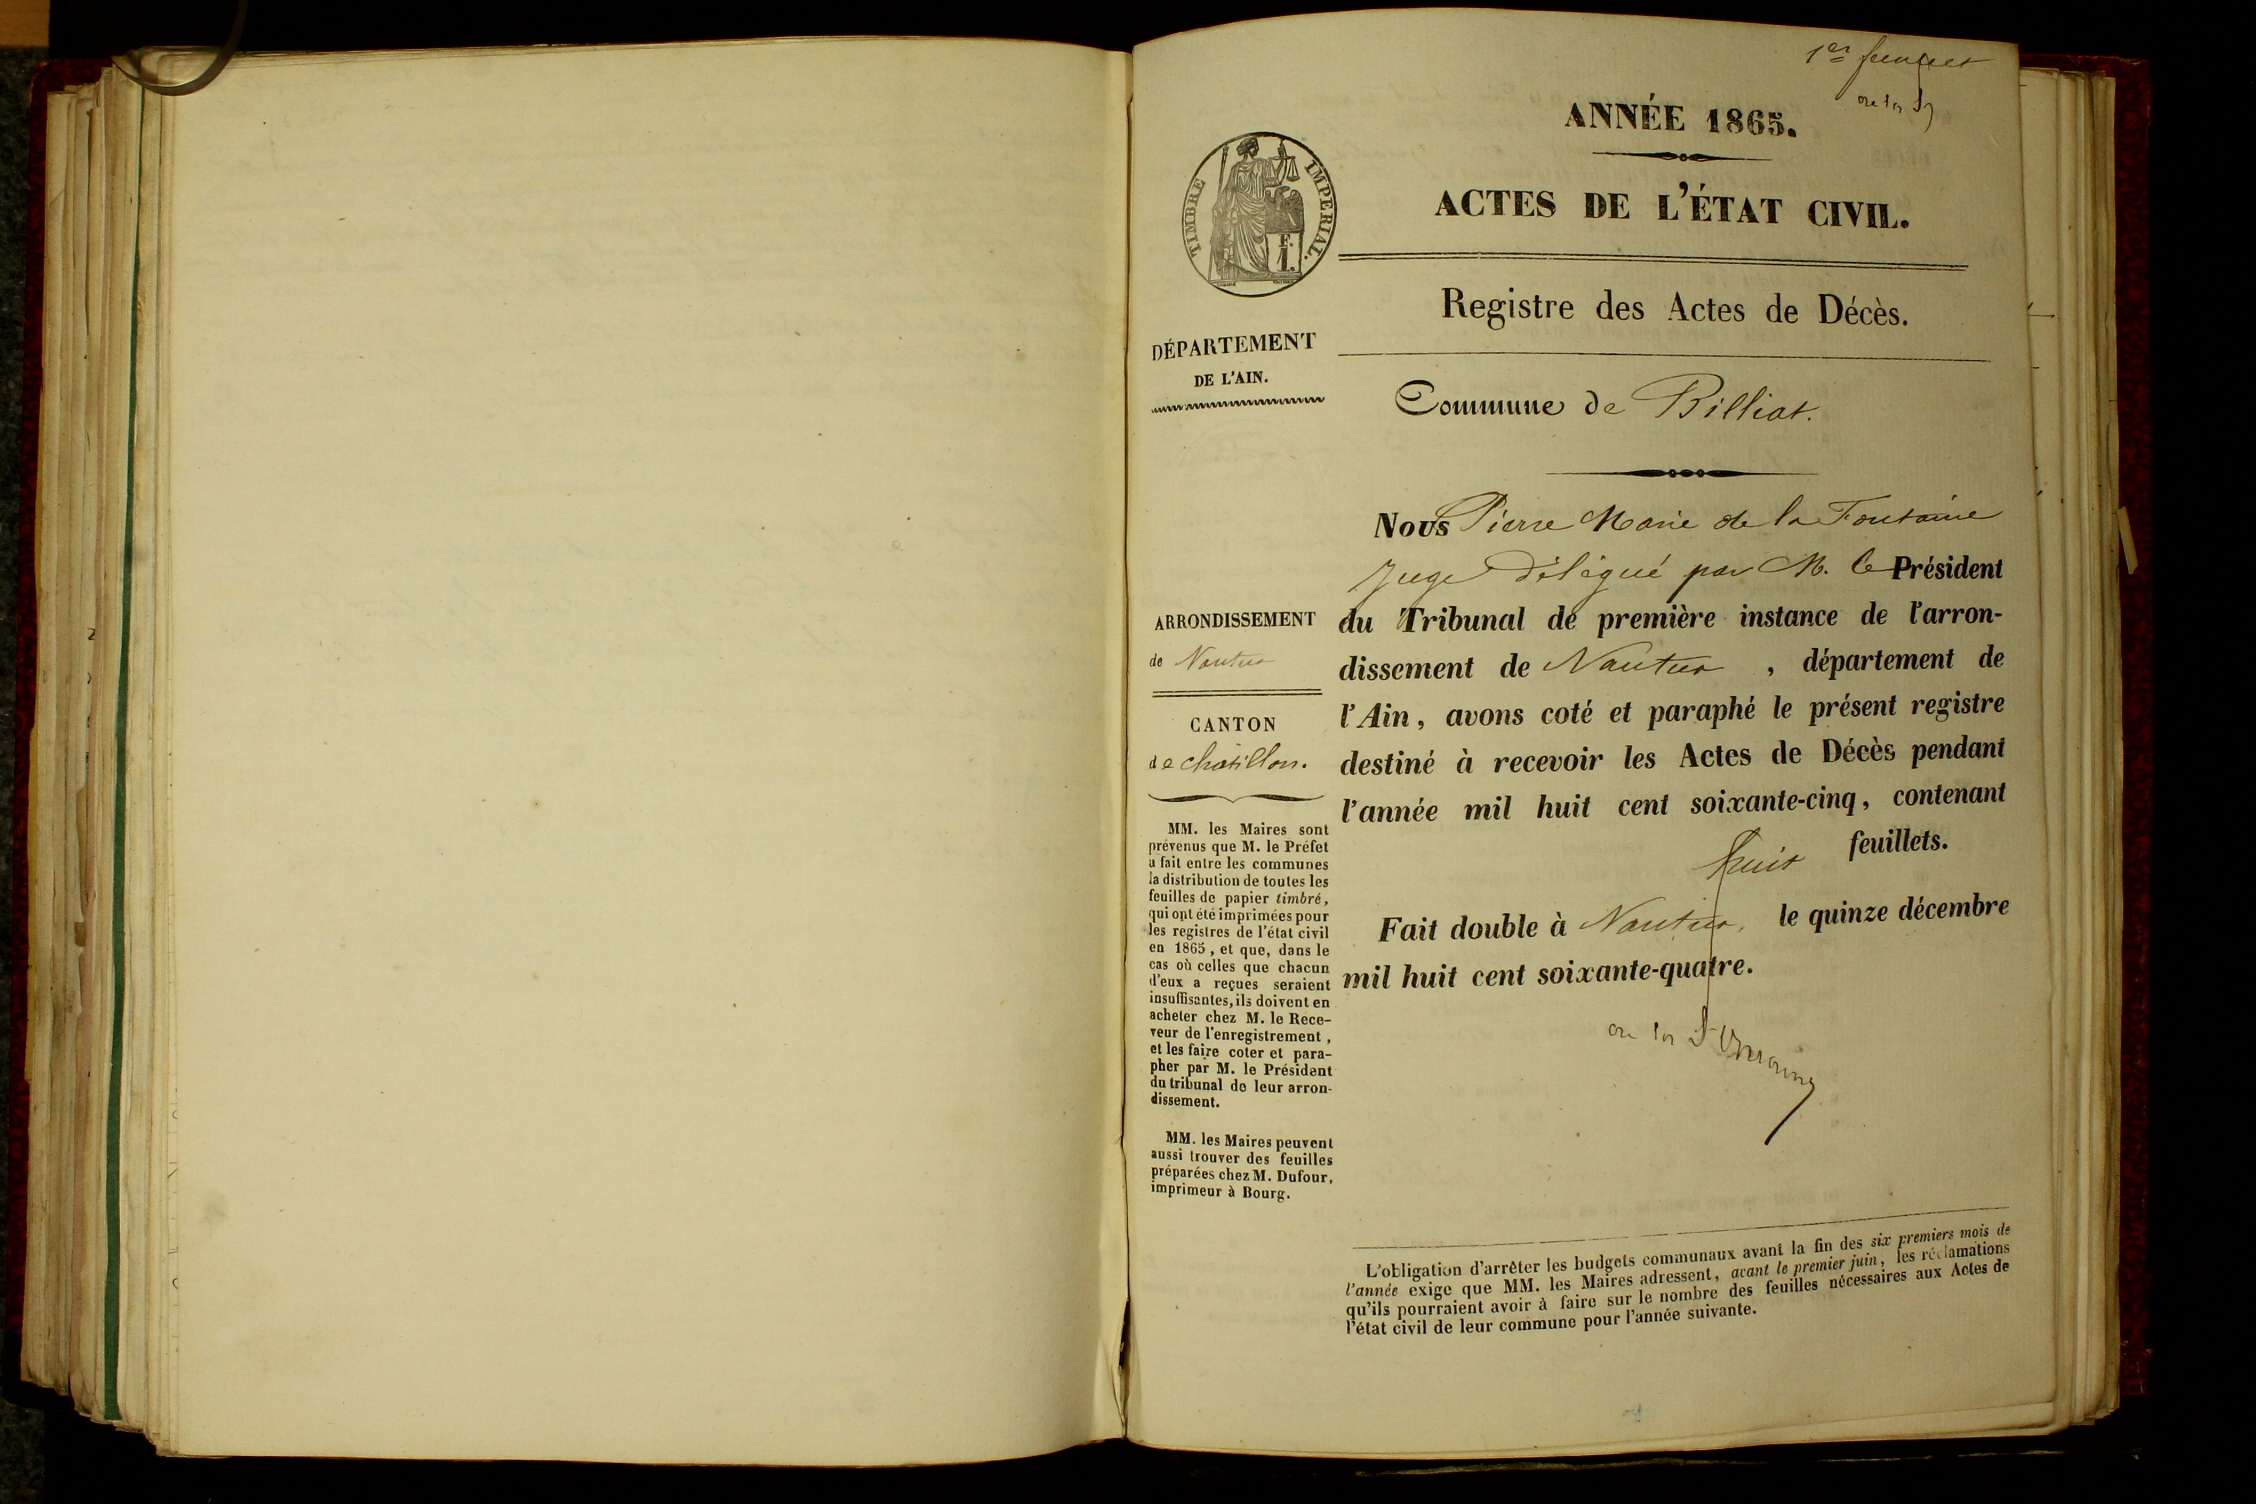 1er feuillet
ANNÉE 1865.
ACTES DE L'ÉTAT CIVIL.
TIMBRE IMPÉRIAL.
F.
1.
Registre des Actes de Décès.
DÉPARTEMENT
DE L'AIN.
Commune de Billiat.
Nous Pierre Marie de la Fontaine
Juge délégué par M. le Président
du Tribunal de première instance de l'arron-
dissement de Nantua, département de
l'Ain, avons coté et paraphé le présent registre
destiné à recevoir les Actes de Décès pendant
l'année mil huit cent soixante-cinq, contenant
huit feuillets.
Fait double à Nantua, le quinze décembre
mil huit cent soixante-quatre.
de la Fontaine
ARRONDISSEMENT
de Nantua
CANTON
de Châtillon.
MM. les Maires sont
prévenus que M. le Préfet
a fait entre les communes
la distribution de toutes les
feuilles de papier timbré,
qui ont été imprimées pour
les registres de l'état civil
en 1865, et que, dans le
cas où celles que chacun
d'eux a reçues seraient
insuffisantes, ils doivent en
acheter chez M. le Rece-
veur de l'enregistrement,
et les faire coter et para-
pher par M. le Président
du tribunal de leur arron-
dissement.
MM. les Maires peuvent
aussi trouver des feuilles
préparées chez M. Dufour,
imprimeur à Bourg.
L'obligation d'arrêter les budgets communaux avant la fin des six premiers mois de
l'année exige que MM. les Maires adressent, avant le premier juin, les réclamations
qu'ils pourraient avoir à faire sur le nombre des feuilles nécessaires aux Actes de
l'état civil de leur commune pour l'année suivante.